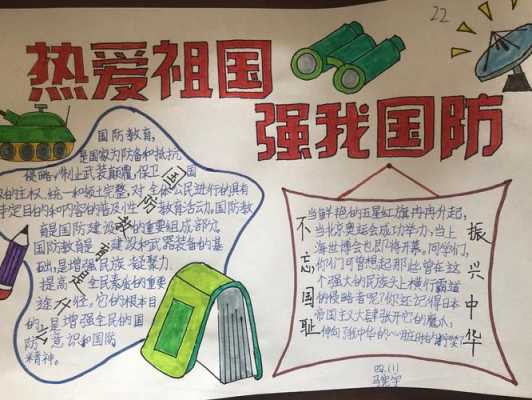 22
热爱祖国
强我国防
国防教育,
是国家为防备和抵抗
侵略,制止武装颠覆,保卫国
的主权、统一和领土完整,对全体公民进行的具有
特定目的和内容的普及性教育活动。国防教
育是国防建设的重要组成部分,
国防教育是建设和武器装备的基
础,是增强民族凝聚力,
提高全民素备的重要
途径。它的根本目
的,是增强全民的国
防意识和国防
精神。
国防教育意义
不忘国耻
当鲜艳的五星红旗冉冉升起,
当北京奥运会成功举办,当上
海世博会也即将开幕,同学们,
你们可曾想起那些曾在这
个强大的民族头上横行霸道
的侵略者呢?你还记得日本
帝国主义大肆张开它的魔爪,
伸向张中华的心脏时的狞笑?
振兴中华
四.(1)
马宪宇